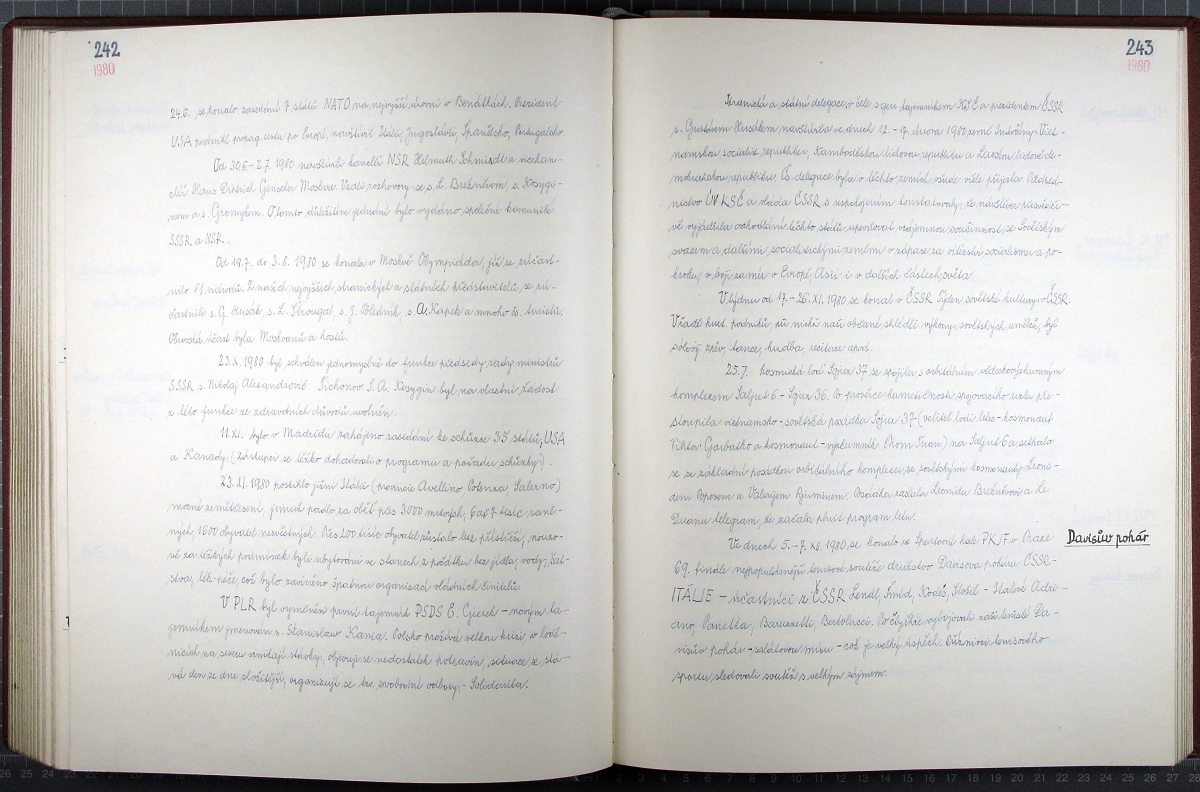 242
1980
24.6. se konalo zasedání 7 států NATO na nejvyšší úrovni v Benátkách. Prezident
USA podnikl propag. cestu po Evropě, navštívil Itálii, Jugoslávii, Španělsko, Portugalsko
Od 30.6.-2.7. 1980 navštívili kancléř NSR Helmuth Schmidt a vicekan-
cléř Hans Dietrich Genscher Moskvu. Vedli rozhovory se s. L. Brežněvem, s. Kosygi-
nem a s. Gromykem. O tomto důležitém jednání bylo vydáno společné komuniké
SSSR a NSR.
Od 19.7. do 3.8. 1980 se konala v Moskvě Olympiáda, jíž se zúčast-
nilo 81 národů. Z našich nejvyšších stranických a státních představitelů se zú-
častnili s. G. Husák, s. L. Štrougal, s. J. s. A. Kapek a mnoho čs. turistů.
Obrovská účast byla Moskvanů a hostů.
23.X. 1980 byl schválen jednomyslně do funkce předsedy rady ministrů
SSSR s. Nikolaj Alexandrovič Tichonov. S. A. Kosygin byl na vlastní žádost
z této funkce ze zdravotních důvodů uvolněn.
11.XI. bylo v Madridu zahájeno zasedání ke schůzce 35 států, USA
a Kanady, (zástupci se těžko dohadovali o programu a pořadu schůzky).
23.XI. 1980 postihlo jižní Itálii (provincie Avellino, Potenza, Salerno)
mocné zemětřesení, jemuž padlo za oběť přes 3000 mrtvých, 6 až 7 tisíc raně-
ných, 1600 obyvatel nezvěstných. Přes 200 tisíc obyvatel zůstalo bez přístřeší, nouzo-
vě za těžkých podmínek byli ubytováni ve stanech z počátku bez jídla, vody, šat-
stva, lék. péče, což bylo zaviněno špatnou organizací vládních činitelů.
V PLR byl vyměněn první tajemník PSDS E. Gierek - novým ta-
jemníkem jmenován s. Stanislaw Kania. Polsko prožívá velkou krizi, v lodě-
nicích na severu vznikají stávky, objevuje se nedostatek potravin, situace se stá-
vá den ze dne složitější, organizují se tzv. svobodné odbory - Solidarita.
243
1980
Stranická a státní delegace v čele s gen. tajemníkem KSČ a prezidentem ČSSR
s. Gustávem Husákem navštívila ve dnech 12.-17. února 1980 země Indočíny: Viet-
namskou socialist. republiku, Kambodžskou lidovou republiku a Laoskou lidově de-
mokratickou republiku. Čs. delegace byla v těchto zemích všude vřele přijata. Předsed-
nictvo ÚV KSČ a vláda ČSSR s uspokojením konstatovaly, že návštěva přesvědči-
vě vyjádřila odhodlání těchto států upevňovat vzájemnou součinnost se Sovětským
svazem a dalšími socialistickými zeměmi v zápase za vítězství socialismu a po-
kroku, v boji za mír v Evropě, Asii i v dalších částech světa.
V týdnu od 17.-26.XI. 1980 se konal v ČSSR Týden sovětské kultury v ČSSR.
V řadě kult. podniků, při nichž naši občané shlédli výkony sovětských umělců, byl
sólový zpěv, tance, hudba, recitace apod.
25.7. kosmická loď Sojuz 37 se spojila s orbitálním vědeckovýzkumným
komplexem Saljut 6 - Sojuz 36. Po prověrce hermetičnosti spojovacího uzlu pře-
stoupila vietnamsko-sovětská posádka Sojuz 37 (velitel lodi letec-kosmonaut
Viktor Gorbatko a kosmonaut-výzkumník Phom Tuan) na Saljut 6 a setkala
se se základní posádkou orbitálního komplexu se sovětskými kosmonauty Leoni-
dem Popovem a Valerijem Rjuminem. Posádka zaslala Leonidu Brežněvovi a Le
Duanu telegram, že začala plnit program letu.
Ve dnech 5.-7.XII. 1980 se konalo ve Sportovní hale PKJF v Praze
Davisův pohár
69. finále nejpopulárnější tenisové soutěže družstev Davisova poháru ČSSR-
ITÁLIE - účastníci z ČSSR Lendl, Šmíd, Kodeš, Složil - Italové Adri-
ano, Panatta, Barazzutti, Bertolucci. Po čtyřhře vybojovali naši tenisté Da-
visův pohár - salátovou mísu - což je velký úspěch. Příznivci tenisového
sportu sledovali soutěž s velkým zájmem.